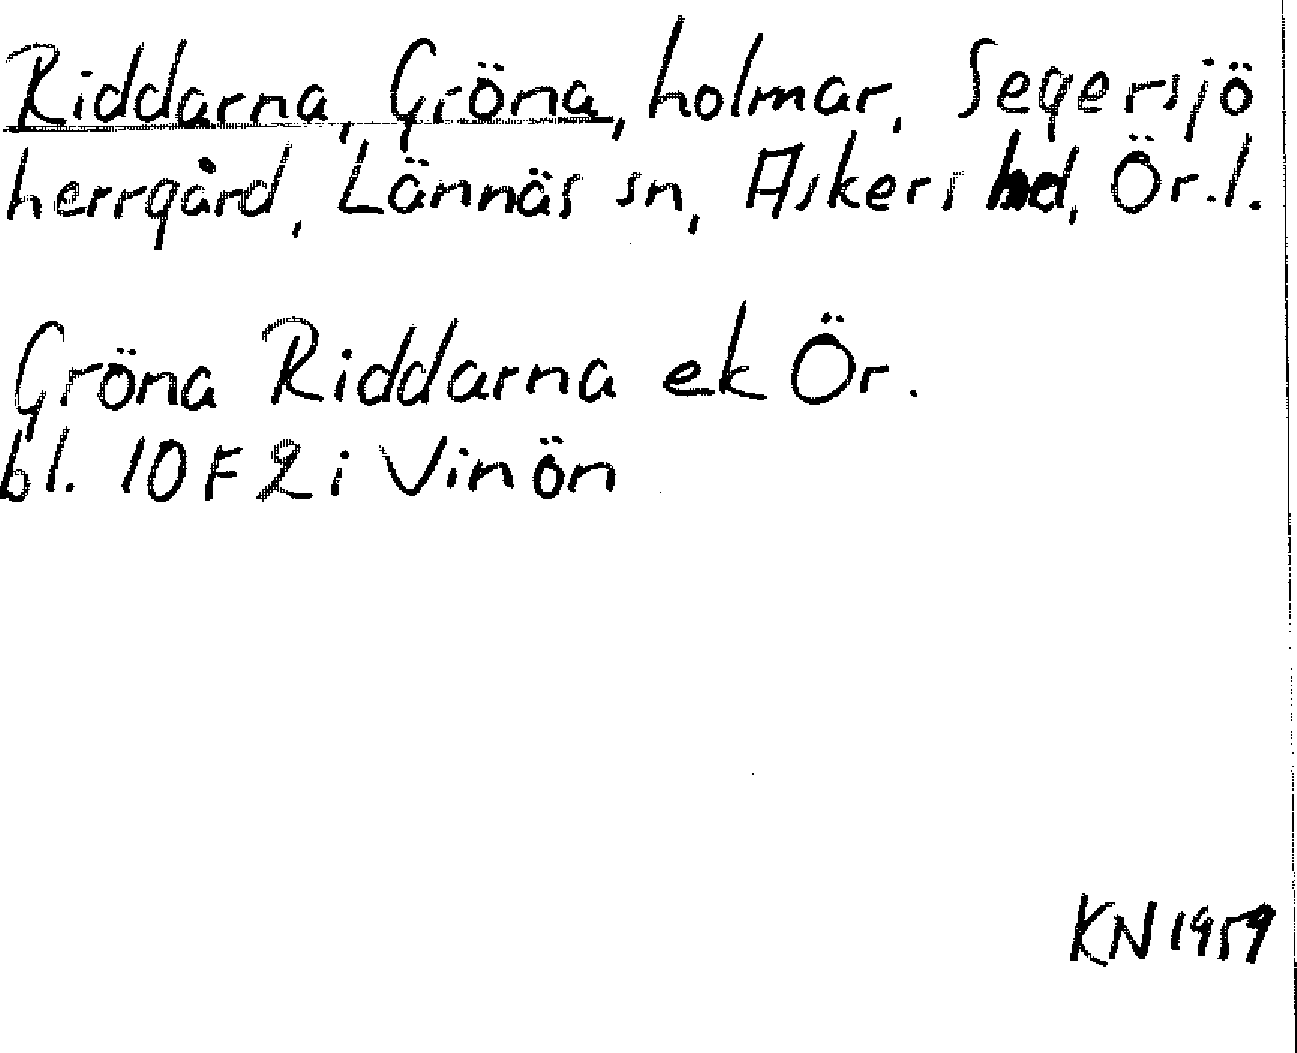 Riddarna, Gröna, holmar, Segersjö
herrgård, Lännäs sn, Askers hd, Ör.l.
Gröna Riddarna ek Ör.
bl. 10F2i Vinön
KN 1959